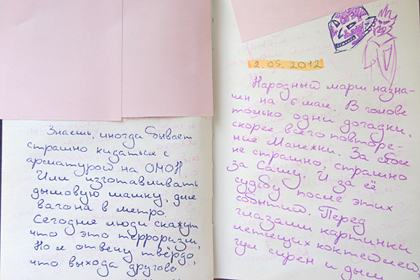 Знаешь, иногда бывает
страшно кидаться с
арматурой на ОМОН
Или изготавливать
дымовую шашку, для
вагона в метро.
Сегодня люди скажут
что это терроризм,
Но я отвечу твёрдо,
что выхода другого
2.05.2012
Народный марш назна-
чен на 6 мая. В голове
только одни догадки,
скорее всего повторе-
ние Манежки. За себя
не страшно, страшно
за Сашу. И за её
судьбу после этих
событий. Перед
глазами картинки
летящих коктейлей,
гул сирен и дым